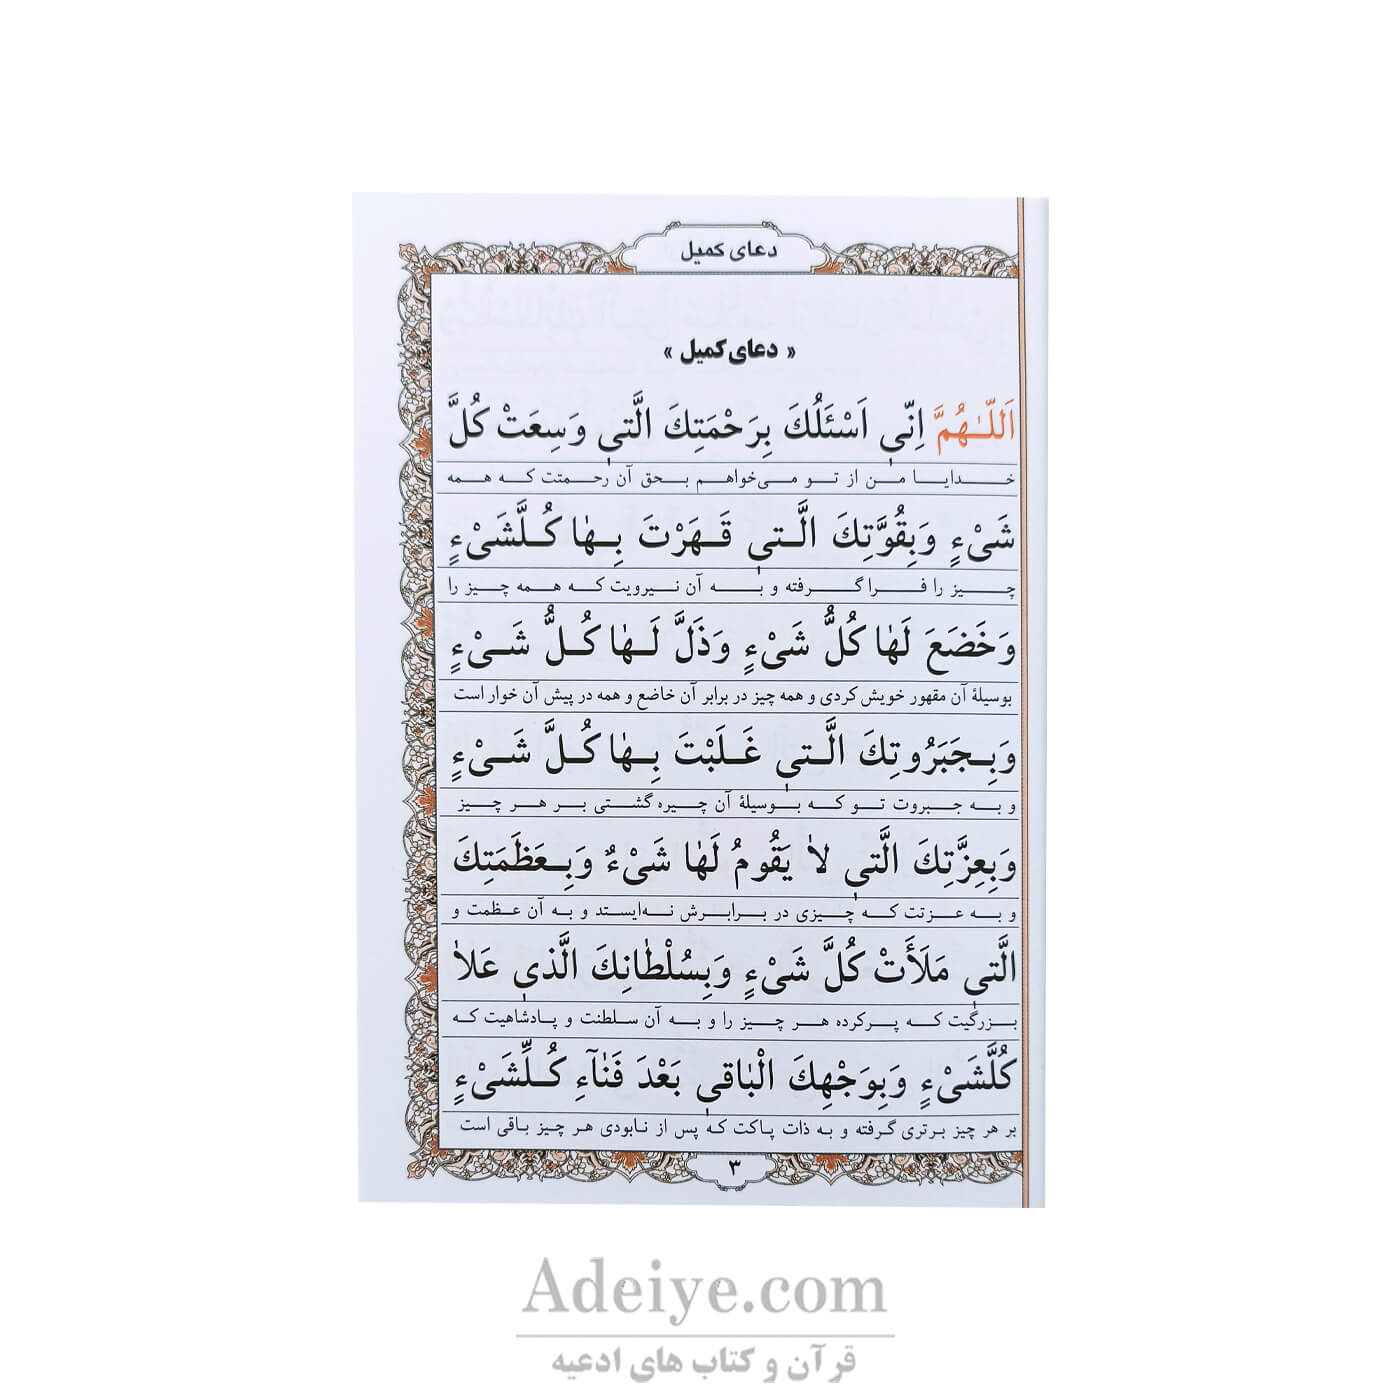 دعای کمیل
« دعای کمیل »
اَللّٰهُمَّ اِنّی اَسْئَلُكَ بِرَحْمَتِكَ الَّتی وَسِعَتْ كُلَّ
خدایا من از تو می‌خواهم بحق آن رحمتت که همه
شَیْءٍ وَبِقُوَّتِكَ الَّتی قَهَرْتَ بِهٰا كُلَّشَیْءٍ
چیز را فرا گرفته و به آن نیرویت که همه چیز را
وَخَضَعَ لَهٰا كُلُّ شَیْءٍ وَذَلَّ لَهٰا كُلُّ شَیْءٍ
بوسیلهٔ آن مقهور خویش کردی و همه چیز در برابر آن خاضع و همه در پیش آن خوار است
وَبِجَبَرُوتِكَ الَّتی غَلَبْتَ بِهٰا كُلَّ شَیْءٍ
و به جبروت تو که بوسیلهٔ آن چیره گشتی بر هر چیز
وَبِعِزَّتِكَ الَّتی لاٰ یَقُومُ لَهٰا شَیْءٌ وَبِعَظَمَتِكَ
و به عزتت که چیزی در برابرش نه‌ایستد و به آن عظمت و
الَّتی مَلَأَتْ كُلَّ شَیْءٍ وَبِسُلْطٰانِكَ الَّذی عَلاٰ
بزرگیت که پر کرده هر چیز را و به آن سلطنت و پادشاهیت که
كُلَّشَیْءٍ وَبِوَجْهِكَ الْبٰاقی بَعْدَ فَنٰآءِ كُلِّشَیْءٍ
بر هر چیز برتری گرفته و به ذات پاکت که پس از نابودی هر چیز باقی است
۳
Adeiye.com
قرآن و کتاب های ادعیه